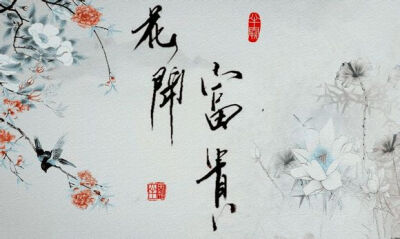 花開
富貴